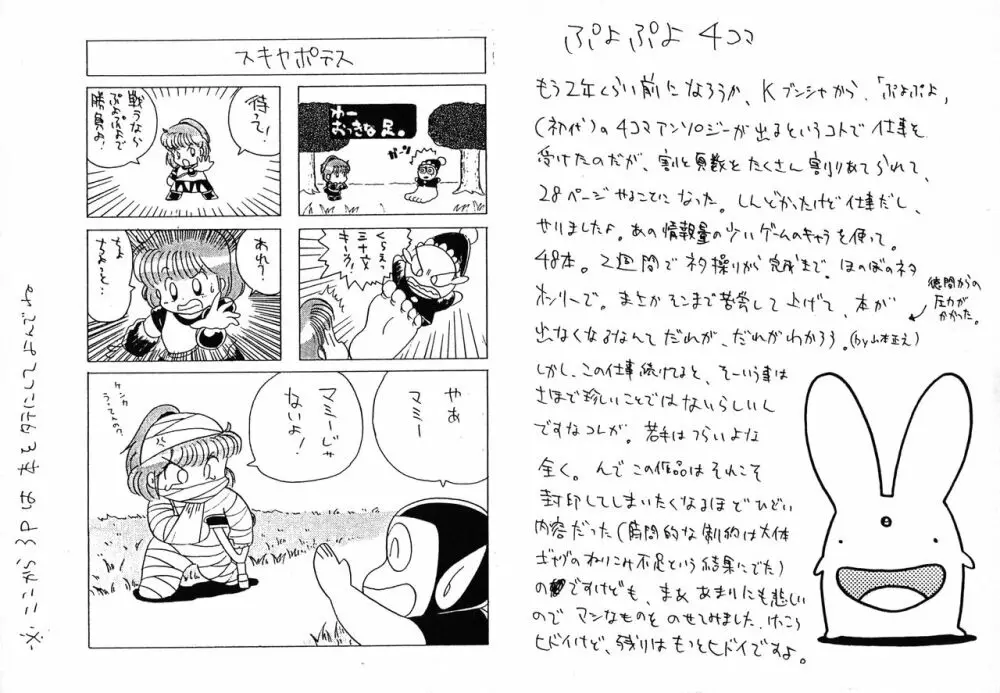 ぷよぷよ 4コマ
もう2年くらい前になろうか、Kブンシャから、「ぷよぷよ」
(初代)の4コマアンソロジーが出るというコトで仕事を
受けたのだが、割と頁数をたくさん割りあてられて、
28ページやることになった。しんどかったけど仕事だし、
やりましたよ。あの情報量の少いゲームのキャラを使って。
48本。2週間でネタ操りから完成まで。ほのぼのネタ
オンリーで。まさかそこまで苦労して上げて、本が
出なくなるなんてだれが、だれがわかろう。(by山本正之)
徳間からの
圧力が
かかった。
しかし、この仕事続けてると、そーいう事は
さほど珍しいことではないらしいん
ですなコレが。若手はつらいよな
全く。んでこの作品はそれこそ
封印してしまいたくなるほどひどい
内容だった(時間的な制約は大体
ギャグのねりこみ不足という結果にでた)
のですけども、まぁあまりにも悲しい
のでマシなものをのせてみました。けっこう
ヒドイけど、残りはもっとヒドイですよ。
スキヤポデス
わー
おっきな足。
ガーン
待って!
戦うなら
ぷよぷよで
勝負よ!
くらえ
三十文
キーック!
あれ?
ちょ
ちょっと…
やぁ
マミー
マミーじゃ
ないよ!
ケンカ
うってんの?
※ここから3Pは本をタテにしてよんでネ